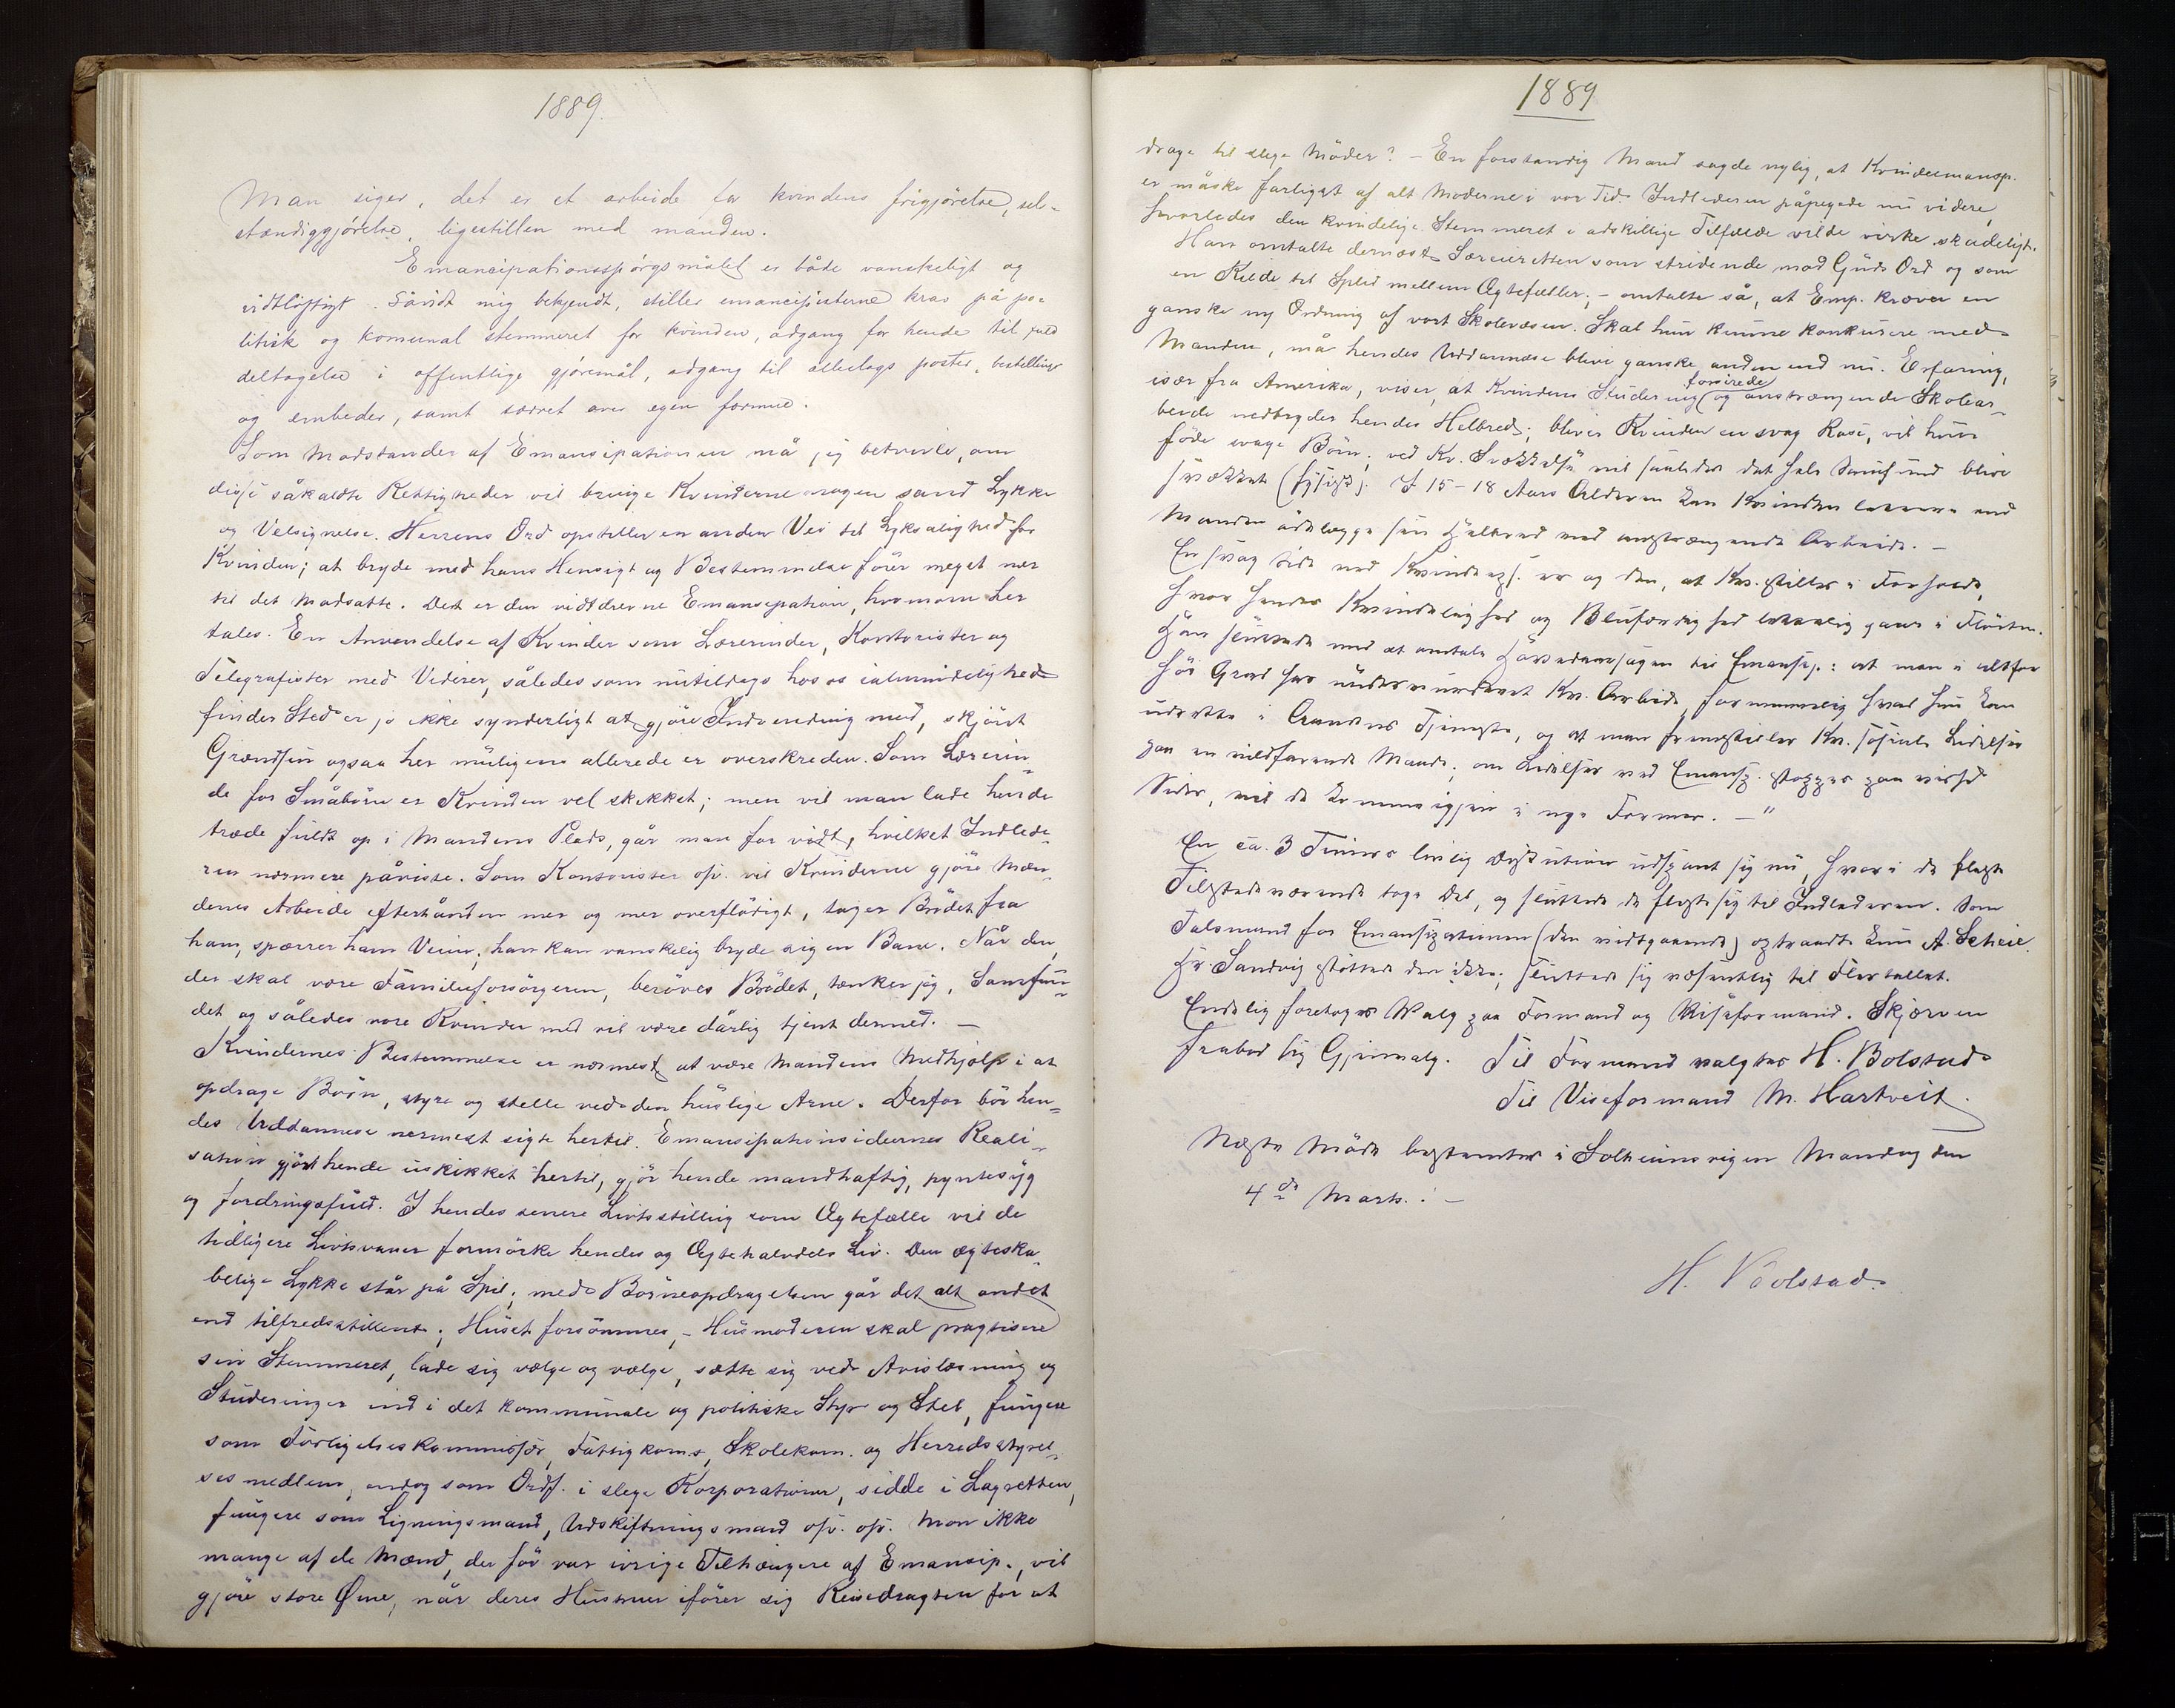 1889.
Man siger, det er et arbeide for kvindens frigjörelse, selv-
stændiggjörelse, ligestillen med manden.
Emancipationsspörgsmålet er både vanskeligt og
vidtlöftigt. Såvidt mig bekjendt, stiller emancipisterne krav på po-
litisk og komunal stemmeret for kvinden, adgang for hende til fuld
deltagelse i offentlige gjöremål, adgang til alleslags poster, bestillinger
og embeder, samt særret over egen formue.
Som Modstander af Emansipationen må jeg betvivle, om
disse såkaldte Rettigheder vil bringe Kvinderne nogen sand Lykke
og Velsignelse. Herrens Ord opstiller en anden Vei til Lyksalighed for
Kvinden; at bryde med hans Hensigt og Bestemmelse förer meget nær
til det Modsatte. Det er den vidtdrevne Emansipation, hvorom her
tales. En Anvendelse af Kvinder som Lærerinder, Kontorister og
Telegrafister med Viderer, således som nutildags hos os ialmindelighed
finder Sted er jo ikke synderligt at gjöre Indvending mod, skjönt
Grændsen ogsaa her muligens allerede er overskreden. Som Lærerin-
de for Småbörn er Kvinden vel skikket; men vil man lade hende
træde fuldt op i Mandens Plads, går man for vidt, hvilket Indlede-
ren nærmere påviste. Som Kontorister osv. vil Kvinderne gjöre Mæn-
denes Arbeide efterhånden mer og mer overflödigt, tager Brödet fra
ham, spærrer ham Veien; han kan vanskelig bryde sig en Bane. Når den,
der skal være Familieforsörgeren, beröves Brödet, tænker jeg, Samfun-
det og således vore Kvinder med vil være dårlig tjent dermed. —
Kvindernes Bestemmelse er nærmest at være Mandens Medhjælp i at
opdrage Börn, styre og stelle ved den huslige Arne. Derfor bör hen-
des Uddannelse nærmest sigte hertil. Emansipationsideernes Reali-
sation gjör hende uskikket hertil, gjör hende mandhaftig, pyntesyg
og fordringsfuld. I hendes senere Livsstilling som Ægtefælle vil de
tidligere Livsvaner formörke hendes og Ægtehalvdels Liv. Den ægteska-
belige Lykke står på Spil; med Börneopdragelsen går det alt andet
end tilfredsstillende; Huset forsömmes, – Husmoderen skal praktisere
sin Stemmeret, lade sig vælge og vælge, sætte sig ved Avislæsning og
Studeringer ind i det kommunale og politiske Styr og Stel, fungere
som Forligelseskommissær, Fattigkoms, Skolekom. og Herredsstyrel-
sesmedlem, endog som Ordf. i slige Korporationer, sidde i Lagretten,
fungere som Ligningsmand, Udskiftningsmand osv. osv. Mon ikke
mange af de Mænd, der för var ivrige Tilhængere af Emansip., vil
gjöre store Øine, når deres Hustruer iförer sig Reisedragten for at
1889
drage til slige Möder? – En forstandig Mand sagde nylig, at Kvindeemansip.
er måske farligst af alt Moderne i vor Tid. Indlederen påpegede nu videre,
hvorledes den kvindelige Stemmeret i adskillige Tilfælde vilde virke skadeligt.
Han omtalte dernæst Særeieretten som stridende mod Guds Ord og som
en Kilde til Splid mellem Ægtefæller; – omtalte så, at Emp. kræver en
ganske ny Ordning af vort Skolevæsen. Skal hun kunne konkurere med
Manden, må hendes Uddannelse blive ganske anden end nu. Erfaring,
især fra Amerika, viser, at Kvindens Studering og forcerede anstrængende Skolear-
beide nedbryder hendes Helbred; bliver Kvinden en svag Rase, vil hun
föde svage Börn; ved Kv. Svækkelse vil saaledes det hele Samfund blive
svækket (fysisk). I 15–18 Aars Alderen kan Kvinden lettere end
Manden ödelægge sin Helbred med anstrængende Arbeide. —
En svag Side ved Kvindeeps. er og den, at Kv. stilles i Forhold,
hvor hendes Kvindelighed og Blufærdighed lettelig gaar i Flöiten.
Han sluttede med at omtale Hovedaarsagen til Emansip.: at man i altfor
höi Grad har undervurderet Kv. Arbeide, fornemmelig hvad hun kan
udrette i Aandens Tjeneste, og at man fremstiller Kv. sociale Lidelser
paa en vildfarende Maade; om Lidelser ved Emansp. stoppes paa visse
Sider, vil de komme igjen i nye Former. — "
En ca. 3 Timers livlig Diskution udspant sig nu, hvori de fleste
Tilstedeværende toge Del, og sluttede de fleste sig til Indlederen. Som
Talsmand for Emansipationen (den vidtgaaende) optraadte kun A. Scheie.
Hr. Sandvig stöttede den ikke; sluttede sig væsentlig til Flertallet.
Endelig foretoges Valg paa Formand og Viseformand. Skjerven
frabad sig Gjenvalg. Til Formand valgtes H. Bolstad
Til Viseformand M. Hartveit.
Næste Möde bestemtes i Solheimsvigen Mandag den
4de Marts. —
H. Bolstad.